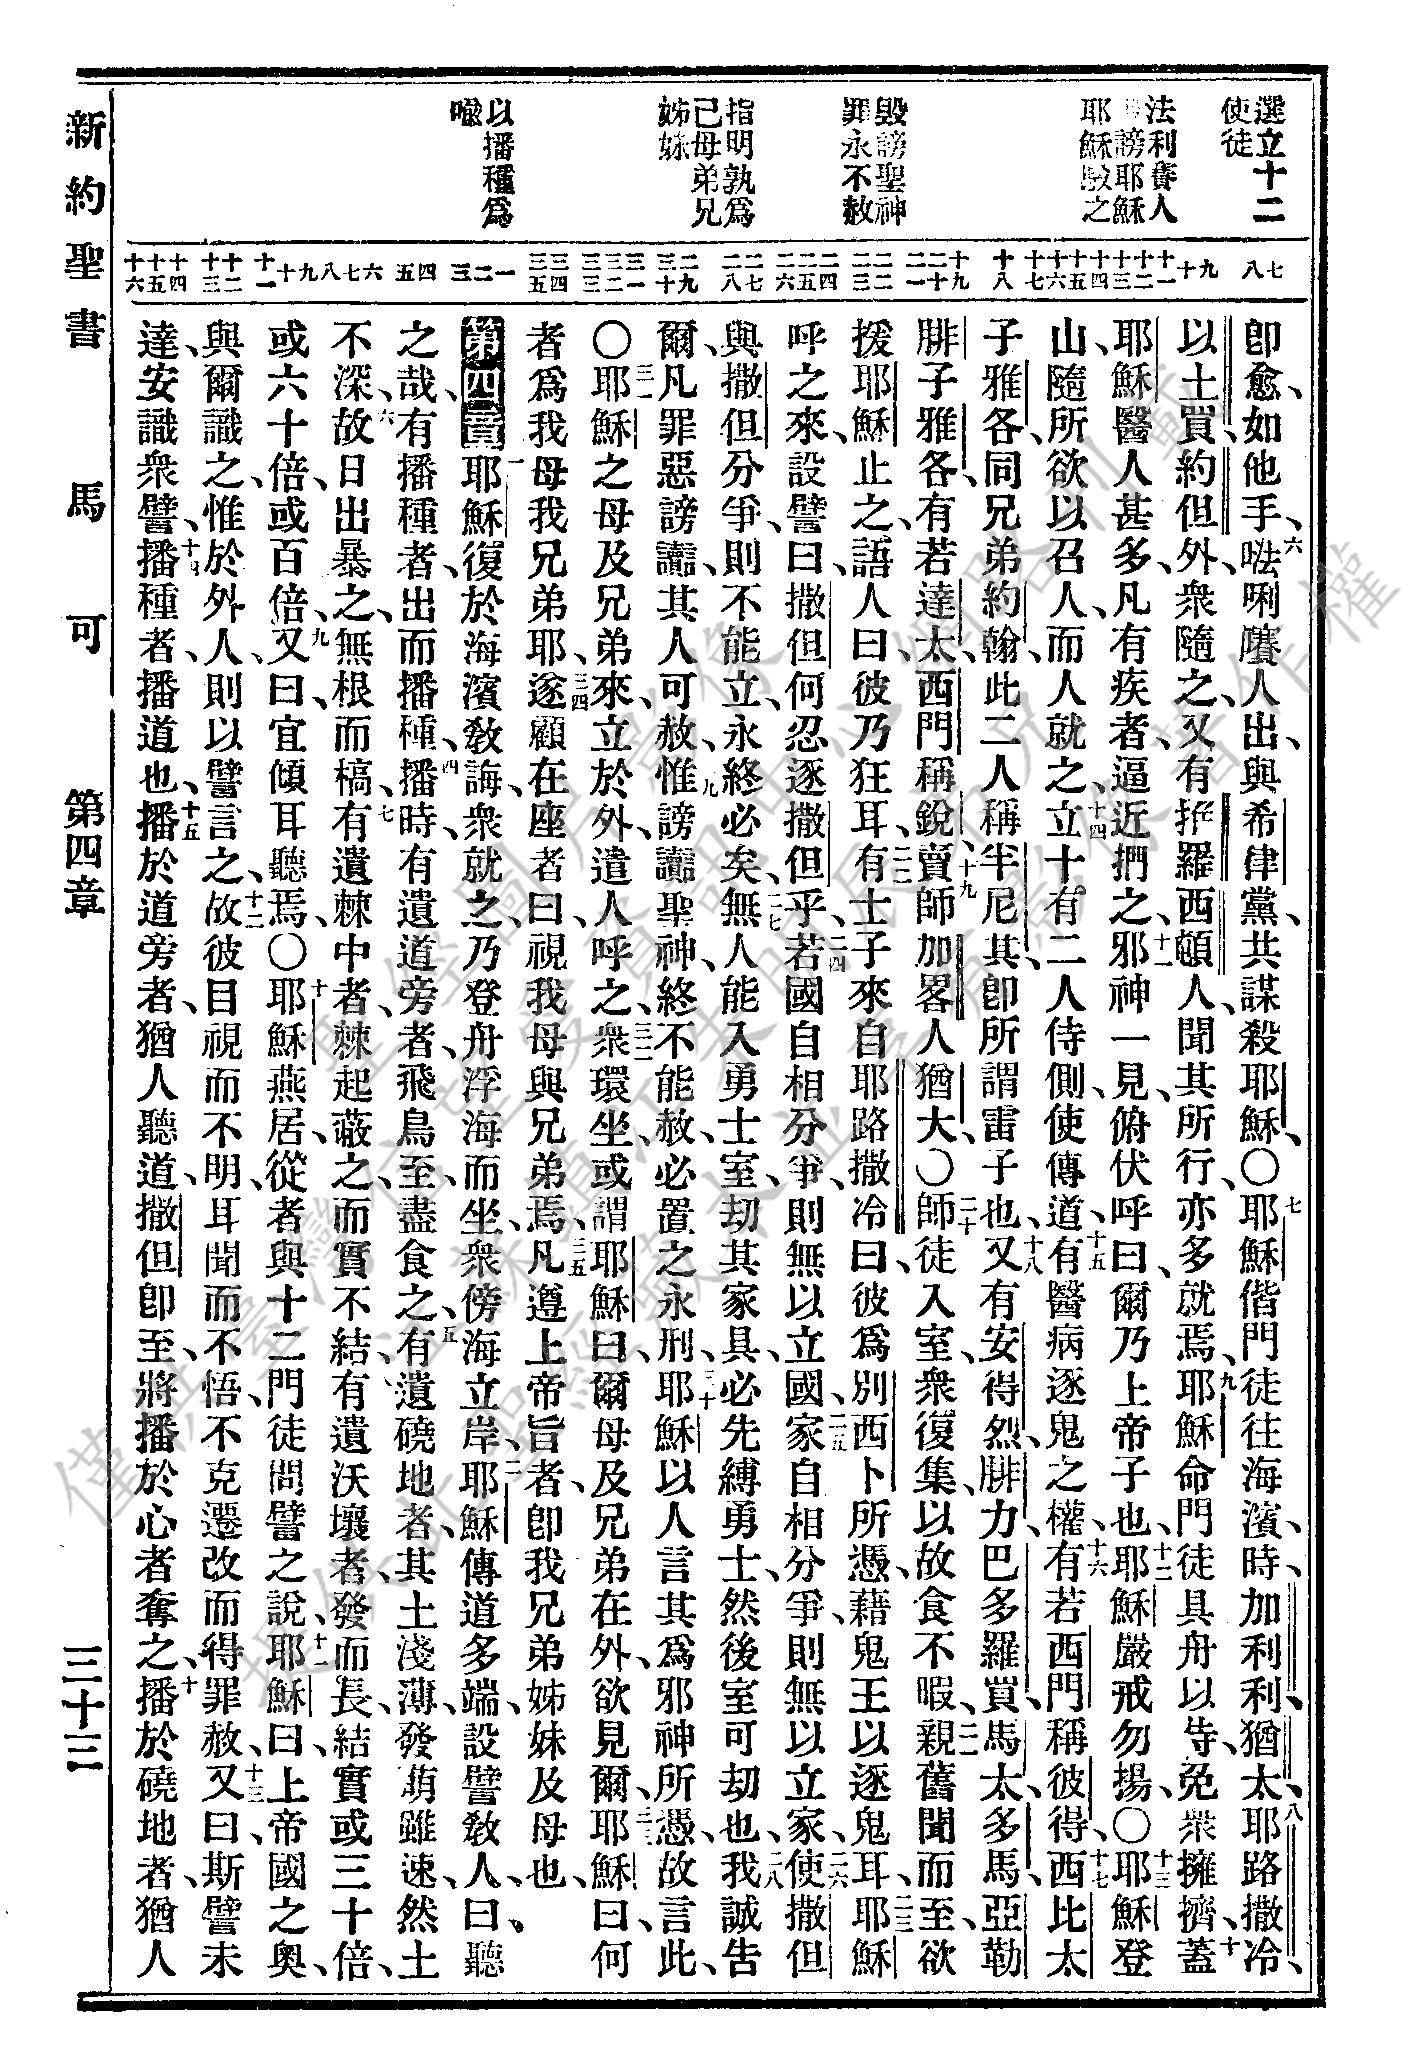 選立十二
使徒
法利賽人
謗耶穌
耶穌駁之
毀謗聖神
罪永不赦
指明孰爲
己母弟兄
姊妹
以播種爲
喩
七
八
九
十
十一
十二
十三
十四
十五
十六
十七
十八
十九
二十
二一
二二
二三
二四
二五
二六
二七
二八
二九
三十
三一
三二
三三
三四
三五
一
二
三
四
五
六
七
八
九
十
十一
十二
十三
十四
十五
十六
卽愈、如他手、六㖸唎㘔人出、與希律黨、共謀殺耶穌、〇七耶穌偕門徒往海濱、時、加利利、猶太、八耶路撒冷、
以土買、約但外、衆隨之、又有推羅西頓人、聞其所行、亦多就焉、九耶穌命門徒具舟以待、免衆擁擠、十蓋
耶穌醫人甚多、凡有疾者、逼近捫之、十一邪神一見、俯伏呼曰、爾乃上帝子也、十二耶穌嚴戒勿揚、〇十三耶穌登
山、隨所欲以召人、而人就之、十四立十有二人侍側、使傳道、十五有醫病逐鬼之權、十六有若西門稱彼得、十七西比太
子雅各、同兄弟約翰、此二人稱半尼其、卽所謂雷子也、十八又有安得烈、腓力、巴多羅買、馬太、多馬、亞勒
腓子雅各、有若達太、西門稱銳、十九賣師加畧人猶大、〇二十師徒入室、衆復集、以故食不暇、二一親舊聞而至、欲
援耶穌止之、語人曰、彼乃狂耳、二二有士子來自耶路撒冷曰、彼爲別西卜所憑、藉鬼王以逐鬼耳、二三耶穌
呼之來、設譬曰、撒但何忍逐撒但乎、二四若國自相分爭、則無以立國、二五家自相分爭、則無以立家、二六使撒但
與撒但分爭、則不能立、永終必矣、二七無人能入勇士室、刧其家具、必先縛勇士、然後室可刧也、二八我誠告
爾、凡罪惡謗讟、其人可赦、二九惟謗讟聖神、終不能赦、必置之永刑、三十耶穌以人言其爲邪神所憑、故言此、
〇三一耶穌之母及兄弟來、立於外、遣人呼之、三二衆環坐、或謂耶穌曰、爾母及兄弟在外、欲見爾、三三耶穌曰、何
者爲我母我兄弟耶、三四遂顧在座者曰、視我母與兄弟焉、三五凡遵上帝旨者、卽我兄弟姊妹及母也、
第四章一耶穌復於海濱敎誨、衆就之、乃登舟浮海而坐、衆傍海立岸、二耶穌傳道多端、設譬敎人、曰、聽
之哉、有播種者、出而播種、四播時、有遺道旁者、飛鳥至、盡食之、五有遺磽地者、其土淺薄、發萌雖速、然土
不深、六故日出暴之、無根而槁、七有遺棘中者、棘起蔽之、而實不結、有遺沃壤者、發而長、結實或三十倍、
或六十倍、或百倍、九又曰、宜傾耳聽焉、〇十耶穌燕居、從者與十二門徒問譬之說、十一耶穌曰、上帝國之奧、
與爾識之、惟於外人、則以譬言之、十二故彼目視而不明、耳聞而不悟、不克遷改而得罪赦、十三又曰、斯譬未
達、安識衆譬、十四播種者、播道也、十五播於道旁者、猶人聽道、撒但卽至、將播於心者奪之、十播於磽地者、猶人
新約聖書 馬可 第四章 三十三